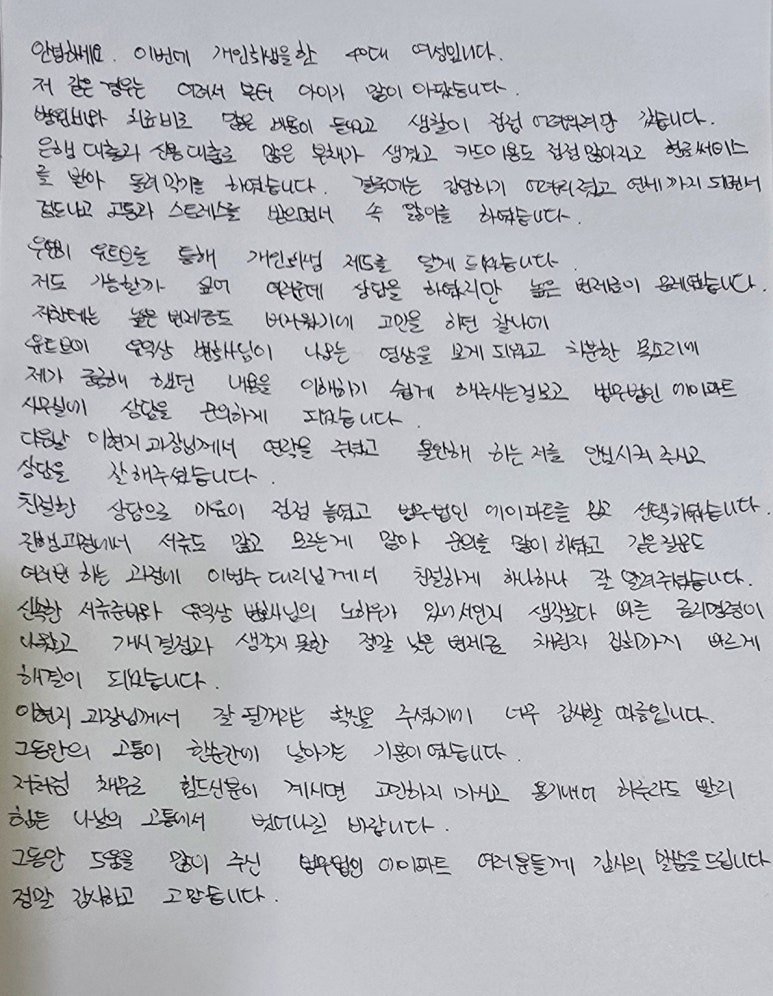 안녕하세요. 이번에 개인회생을한 40대 여성입니다.
저 같은 경우는 어려서 부터 아이가 많이 아팠습니다.
병원비와 치료비로 많은 비용이 들었고 생활이 점점 어려워려만 갔습니다.
은행 대출과 신용대출로 많은 부채가 생겼고 카드이용도 점점 많아지고 현금써비스
를 받아 돌려막기를 하였습니다. 결국에는 감당하기 어려워졌고 연체까지 되면서
겁도나고 고통과 스트레스를 받으면서 속 앓이를 하였습니다.
우연히 유트브를 통해 개인회생 제도를 알게 되었습니다.
저도 가능할까 싶어 여러군데 상담을 하였지만 높은 변제금이 문제였습니다.
저한테는 높은 변제금도 버거웠기에 고민을 하던 찰나에
유트브에 유익상 변호사님이 나오는 영상을 보게 되었고 차분한 목소리에
제가 궁금해 했던 내용을 이해하기 쉽게 해주시는걸보고 법무법인 에이파트
사무실에 상담을 문의하게 되었습니다.
다음날 이현지 과장님께서 연락을 주셨고 불안해 하는 저를 안심시켜 주시고
상담을 잘해주셨습니다.
친절한 상담으로 마음이 점점 놓였고 법무법인 에이파트를 믿고 선택하였습니다.
진행과정에서 서류도 많고 모르는게 많아 문의를 많이 하였고 같은 질문도
여러번 하는 과정에 이범수 대리님께서 친절하게 하나하나 잘 알려주셨습니다.
신속한 서류준비와 유익상 변호사님의 노하우가 있어서인지 생각보다 빠른 금지명령이
나왔고 개시결정과 생각지 못한 정말 낮은 변제금 채권자 집회까지 빠르게
해결이 되었습니다.
이현지 과장님께서 잘 될꺼라는 확신을 주셨기에 너무 감사할 따름입니다.
그동안의 고통이 한순간에 날아가는 기분이였습니다.
저처럼 채무로 힘드신분이 계시면 고민하지 마시고 용기내어 하루라도 빨리
힘든 나날의 고통에서 벗어나길 바랍니다.
그동안 도움을 많이 주신 법무법인 에이파트 여러분들께 감사의 말씀을 드립니다
정말 감사하고 고맙습니다.